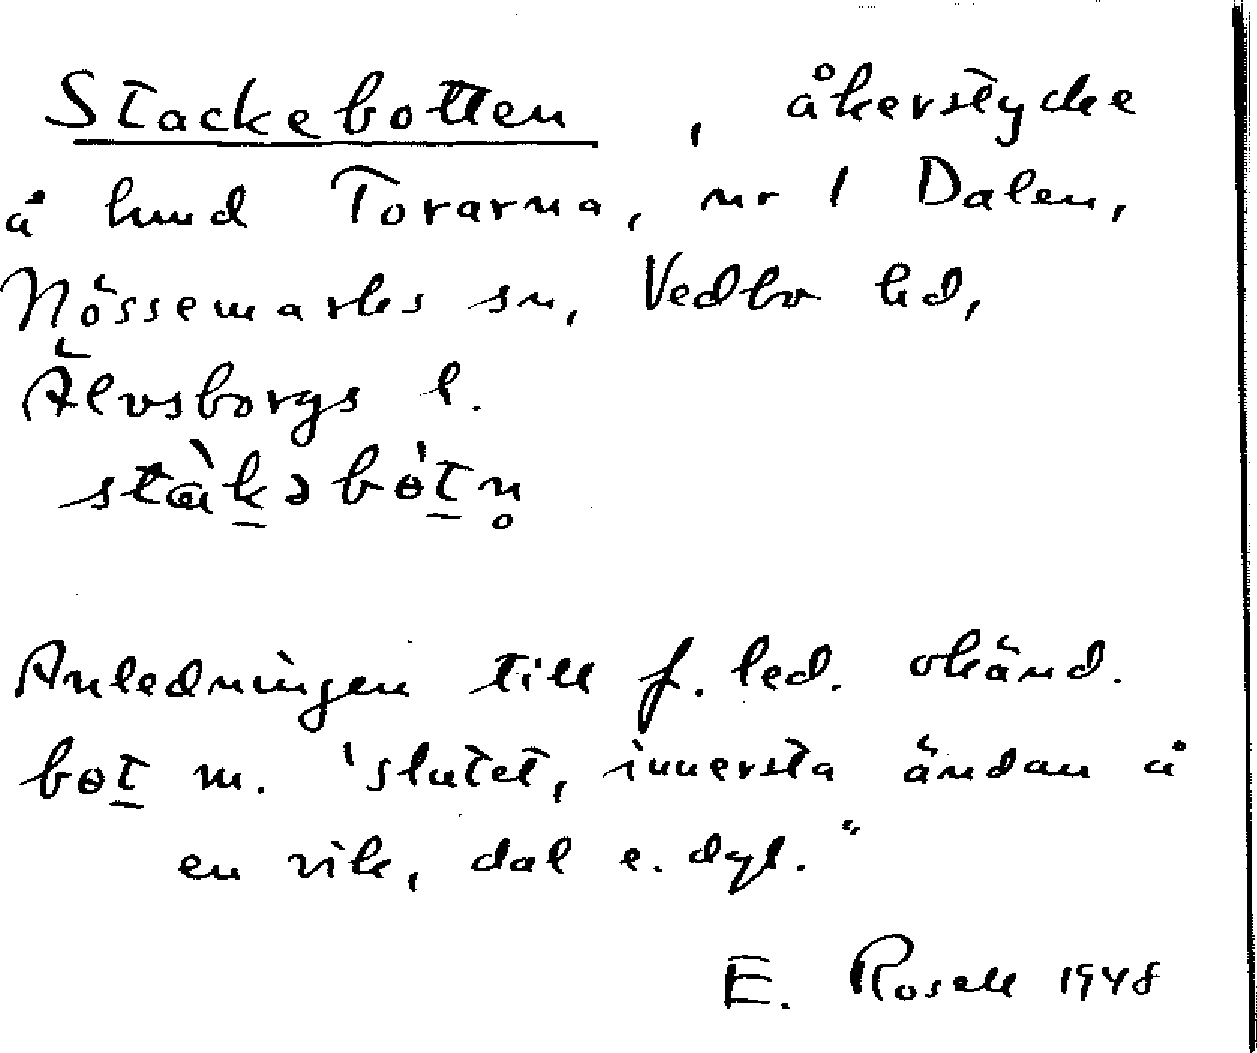 Stackebotten, åkerstycke
å hmd Torarna, nr 1 Dalen,
Nössemarks sn, Vedbo hd,
Älvsborgs l.
stàkəbòtn̥
Anledningen till f. led. okänd.
bɵt m. 'slutet, innersta ändan å
en vik, dal e. dyl."
E. Rosell 1948